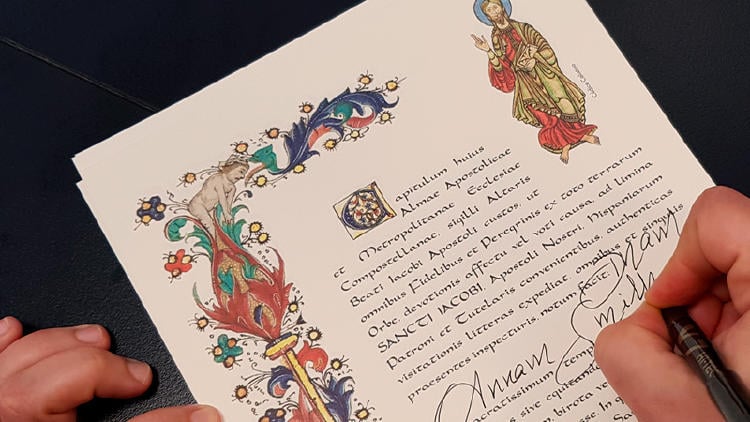 Capitulum huius
Almae Apostolicae
et Metropolitanae Ecclesiae
Compostellanae, sigilli Altaris
Beati Iacobi Apostoli custos, ut
omnibus Fidelibus et Peregrinis ex toto terrarum
Orbe, devotionis affectu vel voti causa, ad limina
SANCTI IACOBI, Apostoli Nostri, Hispaniarum
Patroni et Tutelaris convenientibus, authenticas
visitationis litteras expediat, omnibus et
praesentes inspecturis, notum facit:
Dnam
Annam
sive equitando
birota